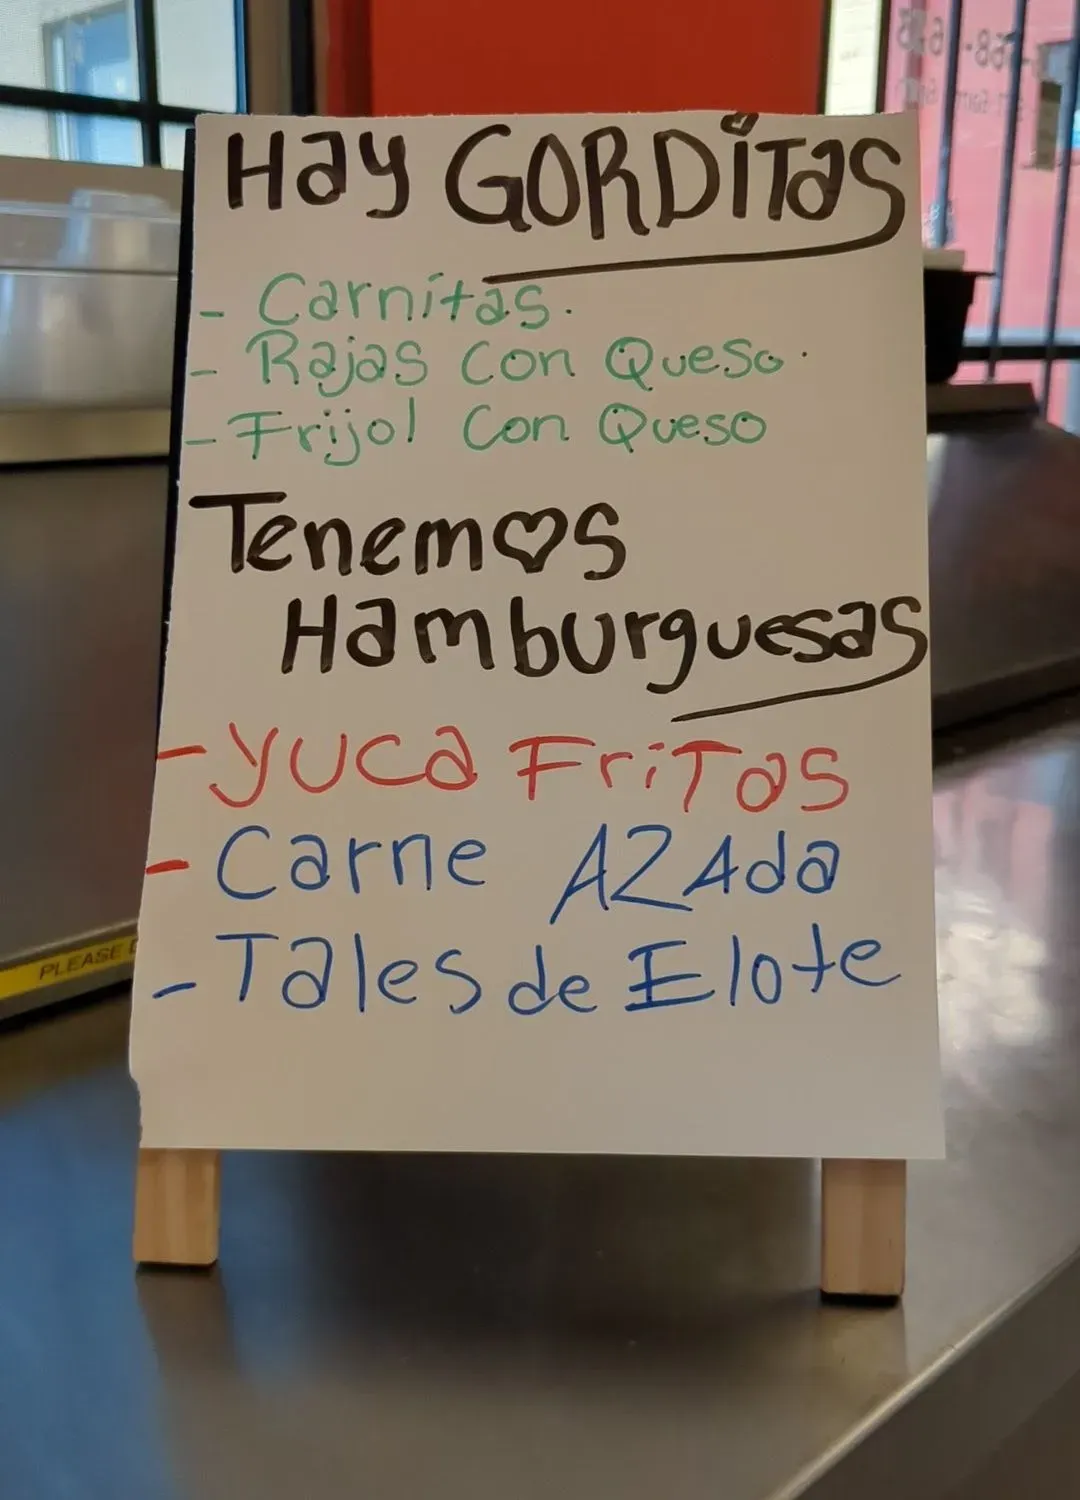 Hay GORDiTas
- Carnitas.
- Rajas Con Queso.
- Frijol Con Queso
Tenem♡s
Hamburguesas
- Yuca FriTas
- Carne AZAda
- Tales de Elote
PLEASE